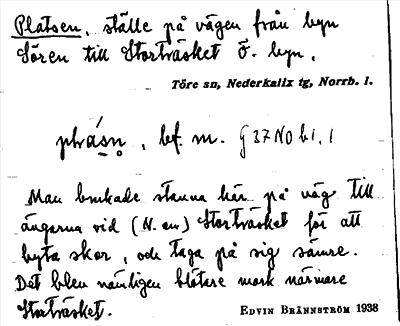 Platsen, ställe på vägen från byn
Sören till Storträsket Ö. byn.
Töre sn, Nederkalix tg, Norrb. l.
plràsn, bef. m. G 37 NO b1, 1
Man brukade stanna här på väg till
ängarna vid (N. om) Storträsket för att
byta skor, och taga på sig sämre.
Det blev nämligen blötare mark närmare
Storträsket.
EDVIN BRÄNNSTRÖM 1938